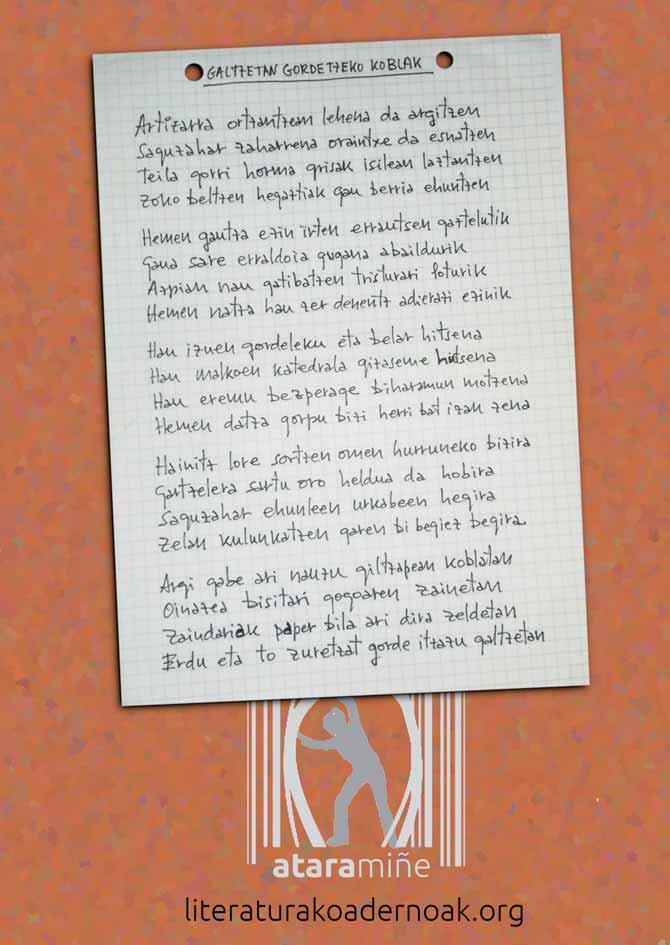 GALTZETAN GORDETZEKO KOBLAK
Artizarra ortzantzean lehena da argitzen
Saguzahar zaharrena oraintxe da esnatzen
Teila gorri horma grisak isilean laztantzen
Zoko beltzen hegaztiak gau berria ehuntzen
Hemen gautza ezin irten errautsen gaztelutik
Gaua sare erraldoia gugana abaildurik
Azpian nau gatibatzen tristurari loturik
Hemen natza hau zer denentz adierazi ezinik
Hau izuen gordeleku eta belar hitsena
Hau malkoen katedrala gizaseme hutsena
Hau eremu bezperage biharamun motzena
Hemen datza gorpu bizi herri bat izan zena
Hainitz lore sortzen omen hurruneko bizira
Gartzelera sartu oro heldua da hobira
Saguzahar ehunleen urkabeen hegira
Zelan kulunkatzen garen bi begiez begira
Argi gabe ari nauzu giltzapean koblatan
Oinazea bisitari gogoaren zainetan
Zaindariak paper bila ari dira zeldetan
Erdu eta to zuretzat gorde itzazu galtzetan
ataramiñe
literaturakoadernoak.org